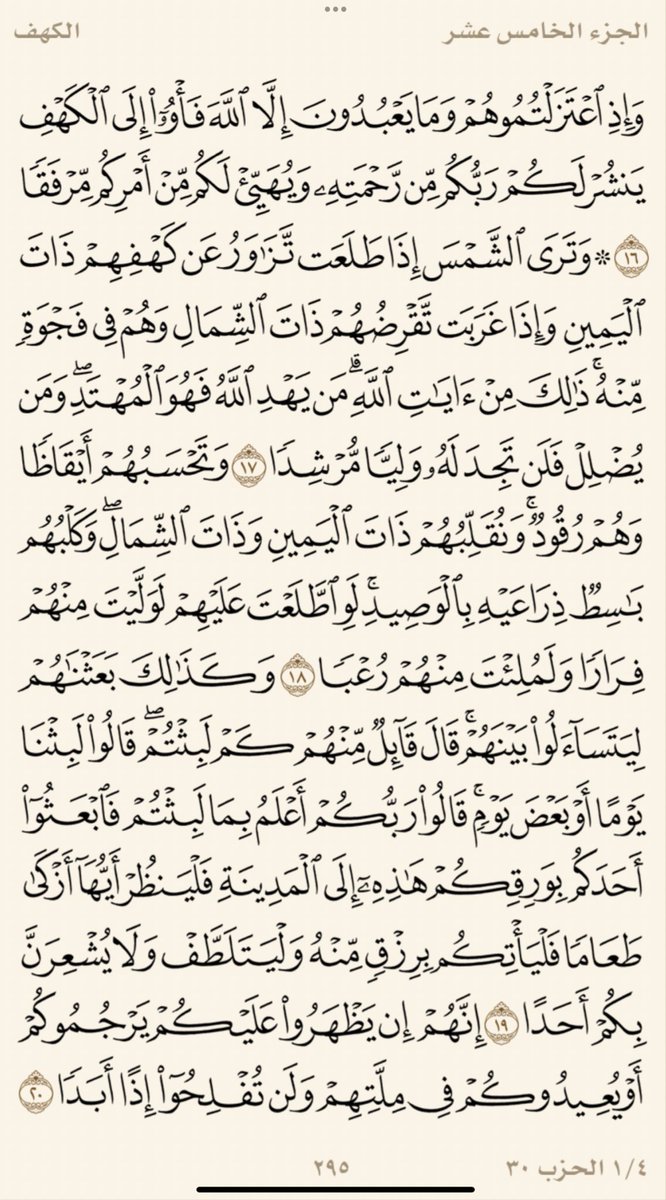 الجزء الخامس عشر
الكهف
وَإِذِ ٱعۡتَزَلۡتُمُوهُمۡ وَمَا يَعۡبُدُونَ إِلَّا ٱللَّهَ فَأۡوُۥٓاْ إِلَى ٱلۡكَهۡفِ
يَنشُرۡ لَكُمۡ رَبُّكُم مِّن رَّحۡمَتِهِۦ وَيُهَيِّئۡ لَكُم مِّنۡ أَمۡرِكُم مِّرۡفَقٗا
١٦ ۞ وَتَرَى ٱلشَّمۡسَ إِذَا طَلَعَت تَّزَٰوَرُ عَن كَهۡفِهِمۡ ذَاتَ
ٱلۡيَمِينِ وَإِذَا غَرَبَت تَّقۡرِضُهُمۡ ذَاتَ ٱلشِّمَالِ وَهُمۡ فِي فَجۡوَةٖ
مِّنۡهُۚ ذَٰلِكَ مِنۡ ءَايَٰتِ ٱللَّهِۗ مَن يَهۡدِ ٱللَّهُ فَهُوَ ٱلۡمُهۡتَدِۖ وَمَن
يُضۡلِلۡ فَلَن تَجِدَ لَهُۥ وَلِيّٗا مُّرۡشِدٗا ١٧ وَتَحۡسَبُهُمۡ أَيۡقَاظٗا
وَهُمۡ رُقُودٞۚ وَنُقَلِّبُهُمۡ ذَاتَ ٱلۡيَمِينِ وَذَاتَ ٱلشِّمَالِۖ وَكَلۡبُهُم
بَٰسِطٞ ذِرَاعَيۡهِ بِٱلۡوَصِيدِۚ لَوِ ٱطَّلَعۡتَ عَلَيۡهِمۡ لَوَلَّيۡتَ مِنۡهُمۡ
فِرَارٗا وَلَمُلِئۡتَ مِنۡهُمۡ رُعۡبٗا ١٨ وَكَذَٰلِكَ بَعَثۡنَٰهُمۡ
لِيَتَسَآءَلُواْ بَيۡنَهُمۡۚ قَالَ قَآئِلٞ مِّنۡهُمۡ كَمۡ لَبِثۡتُمۡۖ قَالُواْ لَبِثۡنَا
يَوۡمًا أَوۡ بَعۡضَ يَوۡمٖۚ قَالُواْ رَبُّكُمۡ أَعۡلَمُ بِمَا لَبِثۡتُمۡ فَٱبۡعَثُوٓاْ
أَحَدَكُم بِوَرِقِكُمۡ هَٰذِهِۦٓ إِلَى ٱلۡمَدِينَةِ فَلۡيَنظُرۡ أَيُّهَآ أَزۡكَىٰ
طَعَامٗا فَلۡيَأۡتِكُم بِرِزۡقٖ مِّنۡهُ وَلۡيَتَلَطَّفۡ وَلَا يُشۡعِرَنَّ
بِكُمۡ أَحَدًا ١٩ إِنَّهُمۡ إِن يَظۡهَرُواْ عَلَيۡكُمۡ يَرۡجُمُوكُمۡ
أَوۡ يُعِيدُوكُمۡ فِي مِلَّتِهِمۡ وَلَن تُفۡلِحُوٓاْ إِذًا أَبَدٗا ٢٠
١/٤ الحزب ٣٠
٢٩٥